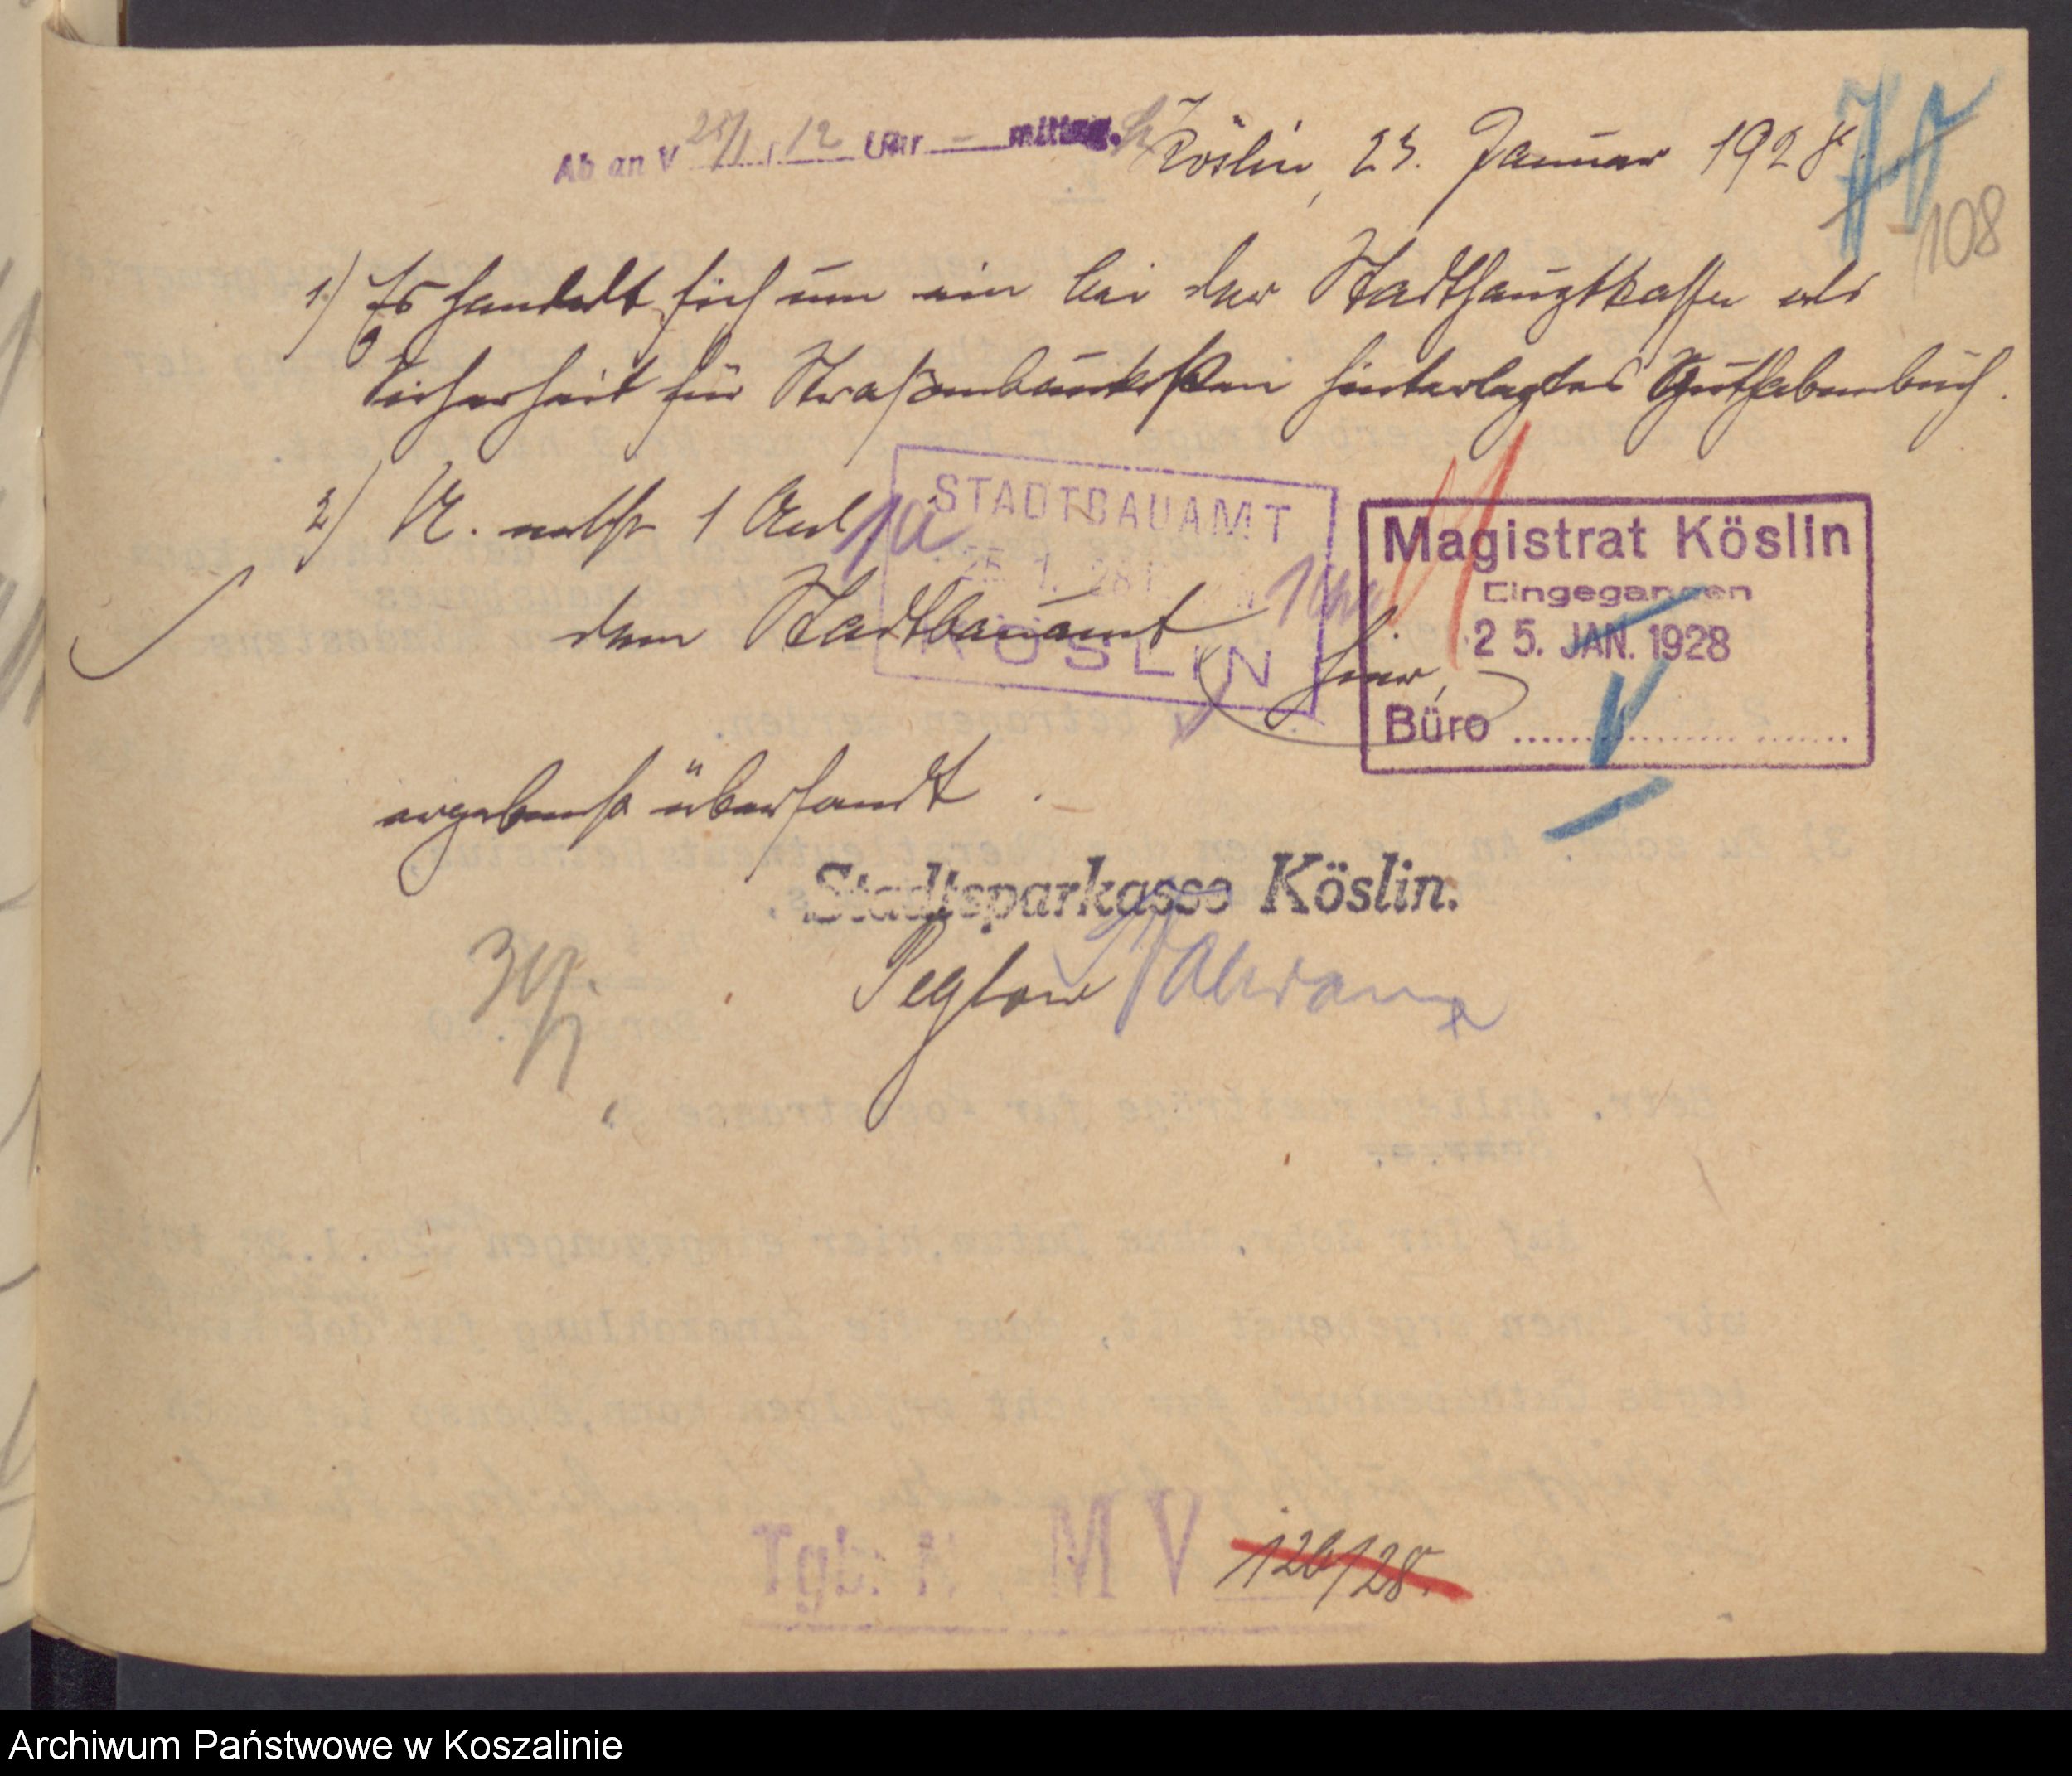 Ab an V 25/1, 12 Uhr – mittag.
Köslin, 23. Januar 1928.
108
1.) Es handelt sich um ein bei der Stadthauptkasse als
Sicherheit für Straßenbaukosten hinterlegtes Guthabenbuch.
2) U. nebst 1 Anl.
STADTBAUAMT
KÖSLIN
Magistrat Köslin
Eingegangen
25. JAN. 1928
Büro
dem Stadtbauamt
hier,
ergebenst übersandt.
Stadtsparkasse Köslin.
Peglow
Tgb. N. M V 126/28.
Archiwum Państwowe w Koszalinie